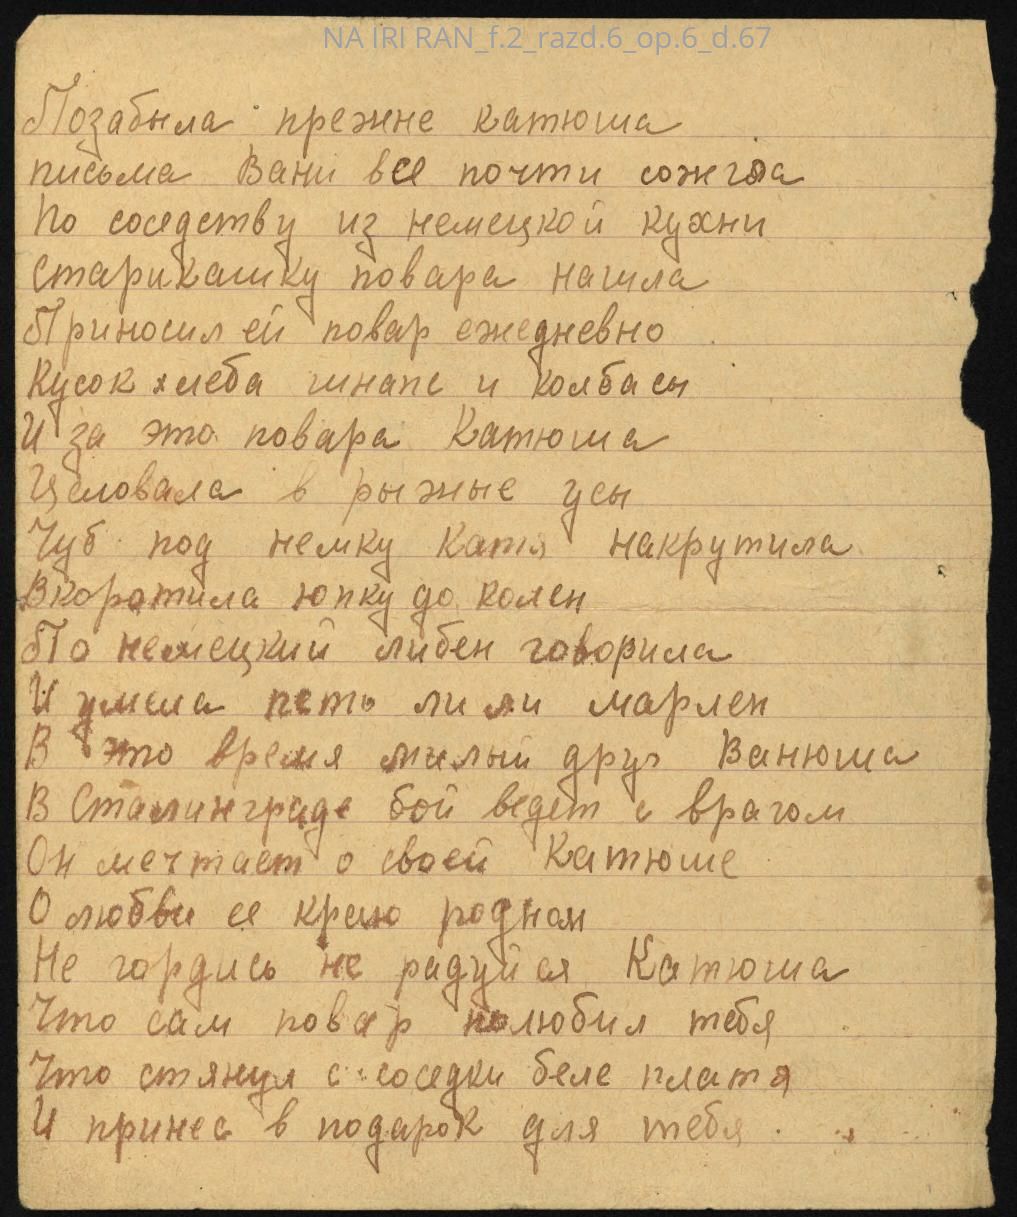 NA IRI RAN_f.2_razd.6_op.6_d.67
Позабыла прежне катюша
письма Вани все почти сожгла
По соседству из немецкой кухни
Старикашку повара нашла
Приносил ей повар ежедневно
Кусок хлеба шнапс и колбасы
И за это повара Катюша
Целовала в рыжые усы
Чуб под немку Катя накрутила
Вкоротила юпку до колен
По немецкий либен говорила
И умела петь лили марлен
В это время милый друг Ванюша
В Сталинграде бой ведет с врагом
Он мечтает о своей Катюше
О любви ее краю родном
Не гордись не радуйся Катюша
Что сам повар полюбил тебя
Что стянул с соседки беле платя
И принес в подарок для тебя.